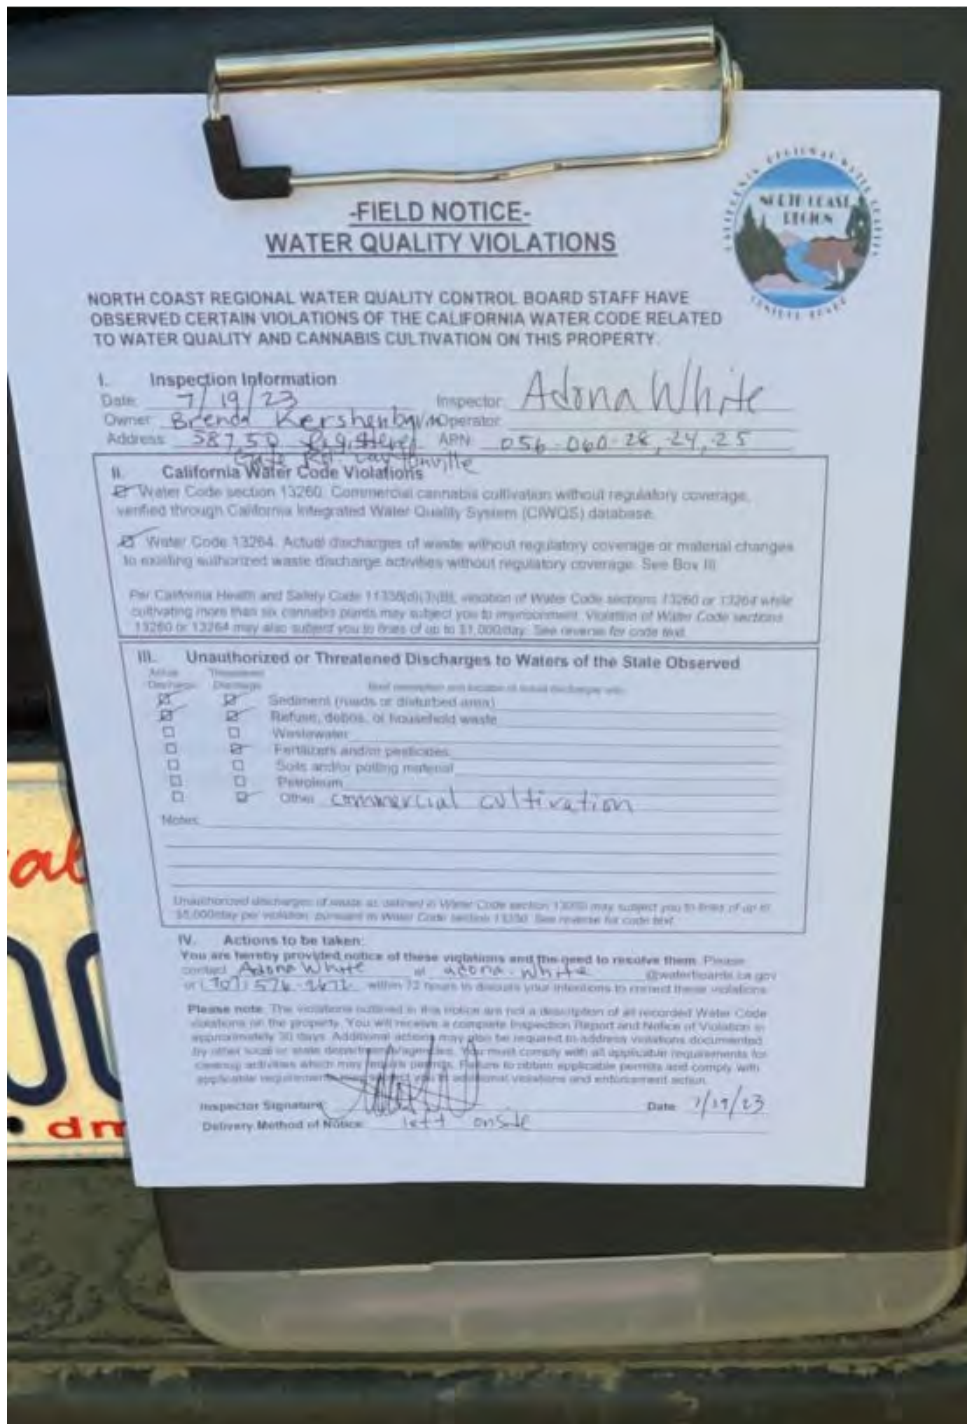 -FIELD NOTICE-
WATER QUALITY VIOLATIONS
CALIFORNIA REGIONAL WATER QUALITY
NORTH COAST
REGION
CONTROL BOARD
NORTH COAST REGIONAL WATER QUALITY CONTROL BOARD STAFF HAVE
OBSERVED CERTAIN VIOLATIONS OF THE CALIFORNIA WATER CODE RELATED
TO WATER QUALITY AND CANNABIS CULTIVATION ON THIS PROPERTY.
I. Inspection Information
Date: 7/19/23 Inspector: Adona White
Owner: Brenda Operator:
Address: 58750 APN: 056-060-28,-24,-25
Gate Rd. Laytonville
II. California Water Code Violations
Water Code section 13260. Commercial cannabis cultivation without regulatory coverage,
verified through California Integrated Water Quality System (CIWQS) database.
Water Code 13264. Actual discharges of waste without regulatory coverage or material changes
to existing authorized waste discharge activities without regulatory coverage. See Box III
Per California Health and Safety Code violation of Water Code sections 13260 or 13264 while
cultivating more than six cannabis plants may subject you to imprisonment. Violation of Water Code sections
13260 or 13264 may also subject you to fines of up to $1,000/day. See reverse for code text.
III. Unauthorized or Threatened Discharges to Waters of the State Observed
Actual Threatened
Discharge Discharge Brief description and location of actual discharges
Sediment (roads or disturbed area)
Refuse, debris, or household waste
Wastewater
Fertilizers and/or pesticides
Soils and/or potting material
Petroleum
Other commercial cultivation
Notes:
Unauthorized discharges of waste as defined in Water Code section 13050 may subject you to fines of up to
$5,000/day per violation, pursuant to Water Code section 13350. See reverse for code text.
IV. Actions to be taken:
You are hereby provided notice of these violations and the need to resolve them. Please
contact Adona White at adona.white @waterboards.ca.gov
or (707) 576-2672 within 72 hours to discuss your intentions to correct these violations.
Please note: The violations outlined in this notice are not a description of all recorded Water Code
violations on the property. You will receive a complete Inspection Report and Notice of Violation in
approximately 30 days. Additional actions may also be required to address violations documented
by other local or state departments/agencies. You must comply with all applicable requirements for
cleanup activities which may require permits. Failure to obtain applicable permits and comply with
applicable requirements may subject you to additional violations and enforcement action.
Inspector Signature: Date 7/19/23
Delivery Method of Notice: left onsite